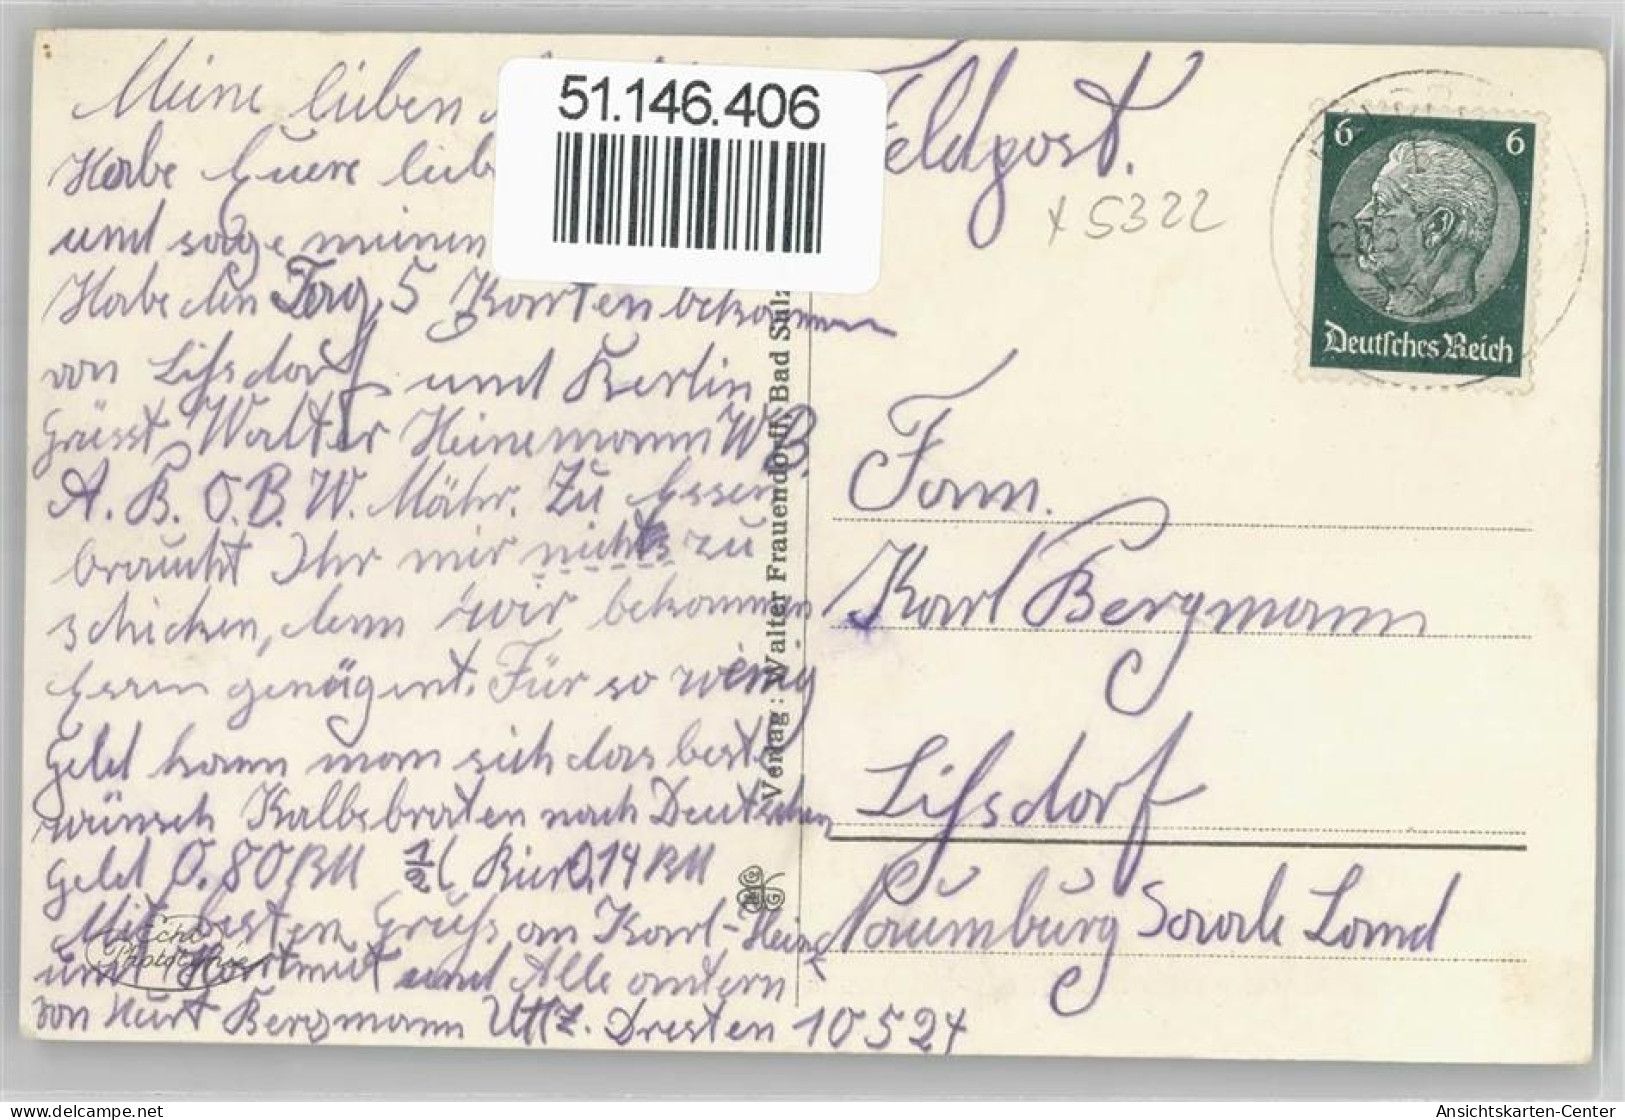 Meine lieben
Habe Euere lieb
und sage meinen
Habe den Tag 5 Karten bekommen
von Lißdorf und Berlin
Grüsst Walter Heinemann W.B.
A. B. O.B.W. Mähr. Zu Essen
braucht Ihr mir nichts zu
schicken, denn wir bekommen
Essen genügent. Für so wenig
Geld kann man sich das beste
wünsch Kalbsbraten nach Deutschen
Geld 0.80 RM 1/2 l Bier 0,14 RM
Mit besten Gruß an Karl-Heinz
und Hartmut und Alle andern
von Kurt Bergmann Uffz. Dresten 10524
51.146.406
Feldpost.
x 5322
6 6
Deutsches Reich
Fam.
Karl Bergmann
Lißdorf
Naumburg Saale Land
Verlag: Walter Frauendorf, Bad Sulz
Echte
Photographie
Ansichtskarten-Center
www.delcampe.net